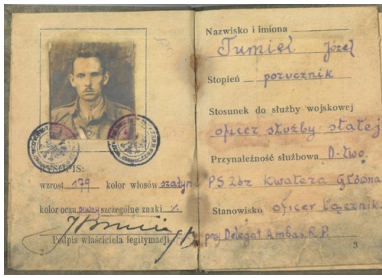 RYSOPIS:
wzrost 179 kolor włosów szatyn
kolor oczu piwny szczególne znaki
Podpis właściciela legitymacji
Nazwisko i imiona
Tumiel Józef
Stopień porucznik
Stosunek do służby wojskowej
oficer służby stałej
Przynależność służbowa D-two
P S Zbr Kwatera Główna
Stanowisko oficer łącznik.
przy Delegat Ambas. R.P.
3